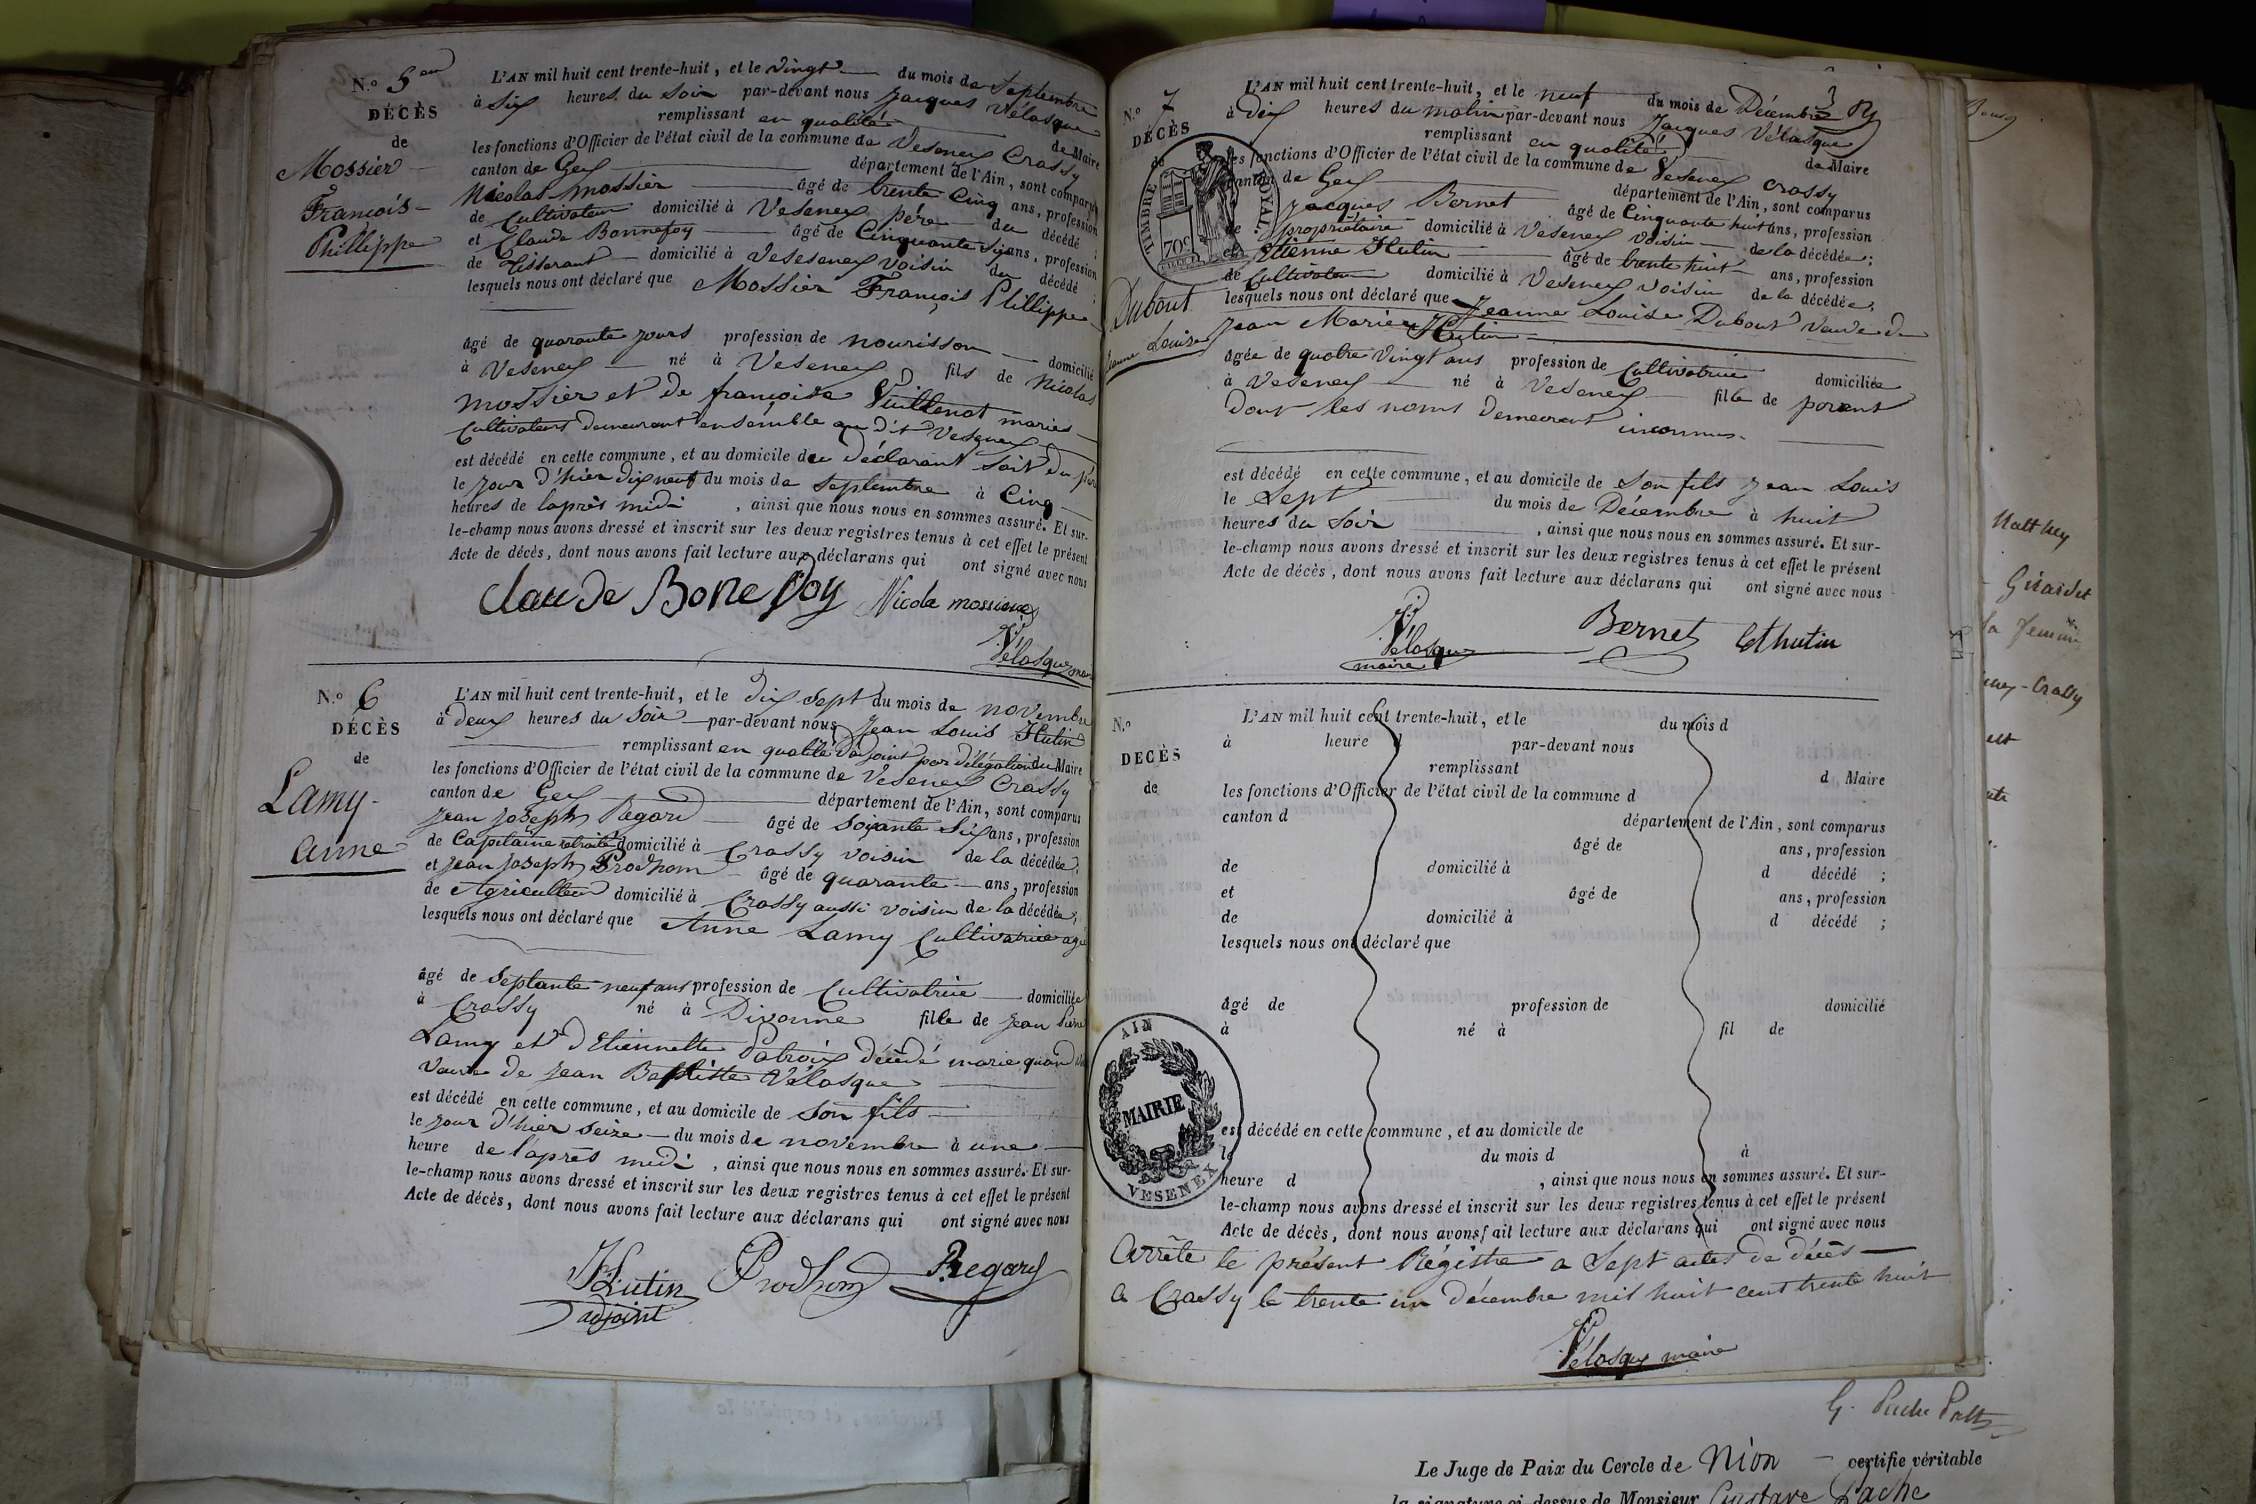 N.o 5 eme
DÉCÈS
de
Mossier
François
Phillippe
L'AN mil huit cent trente-huit, et le vingt du mois de Septembre
à Six heures du Soir par-devant nous Jacques Vélasque
remplissant en qualité de Maire
les fonctions d'Officier de l'état civil de la commune de Vesenex Crassy
canton de Gex département de l'Ain, sont comparus
Nicolas Mossier âgé de trente Cinq ans, profession
de Cultivateur domicilié à Vesenex père du décédé ;
et Claude Bonnefoy âgé de Cinquante Six ans, profession
de Tisserant domicilié à Vesesenex voisin du décédé ;
lesquels nous ont déclaré que Mossier François Phillippe
âgé de quarante jours profession de nourisson domicilié
à Vesenex né à Vesenex fils de Nicolas
Mossier et de françoise Vuillenot mariés
Cultivateurs demeurant ensemble au dit Vesenex
est décédé en cette commune, et au domicile du déclarant Soit du père
le jour d'hier dix neuf du mois de Septembre à Cinq
heures de laprès midi , ainsi que nous nous en sommes assuré. Et sur-
le-champ nous avons dressé et inscrit sur les deux registres tenus à cet effet le présent
Acte de décès, dont nous avons fait lecture aux déclarans qui ont signé avec nous
Claude Bonefoy Nicola mossier
Vélasque maire
N.o 6
DÉCÈS
de
Lamy
Anne
L'AN mil huit cent trente-huit, et le dix Sept du mois de novembre
à deux heures du Soir par-devant nous Jean Louis Hutin
remplissant en qualité d'adjoint par délégation du Maire
les fonctions d'Officier de l'état civil de la commune de Vesenex Crassy
canton de Gex département de l'Ain, sont comparus
Jean Joseph Regard âgé de Soixante Six ans, profession
de Capitaine retraité domicilié à Crassy voisin de la décédée ;
et Jean Joseph Prodhom âgé de quarante ans, profession
de Agriculteur domicilié à Crassy aussi voisin de la décédée ;
lesquels nous ont déclaré que Anne Lamy Cultivatrice agé
âgé de Septante neuf ans profession de Cultivatrice domiciliée
à Crassy né à Divonne fille de Jean Pierre
Lamy et d'Etiennette Patroix décédé marie quand
Veuve de Jean Baptiste Vélasque
est décédé en cette commune, et au domicile de Son fils
le jour d'hier Seize du mois de novembre à une
heure de l'après midi , ainsi que nous nous en sommes assuré. Et sur-
le-champ nous avons dressé et inscrit sur les deux registres tenus à cet effet le présent
Acte de décès, dont nous avons fait lecture aux déclarans qui ont signé avec nous
Hutin Prodhom Regard
adjoint
N.o 7
DÉCÈS
de
Dubout
Jeanne Louise
TIMBRE ROYAL
70c
L'AN mil huit cent trente-huit, et le neuf du mois de Décembre
à Dix heures du matin par-devant nous Jacques Vélasque
remplissant en qualité de Maire
les fonctions d'Officier de l'état civil de la commune de Vesenex Crassy
canton de Gex département de l'Ain, sont comparus
Jacques Bernet âgé de Cinquante huit ans, profession
de propriétaire domicilié à Vesenex voisin de la décédée ;
et Etienne Hutin âgé de trente huit ans, profession
de Cultivateur domicilié à Vesenex voisin de la décédée,
lesquels nous ont déclaré que Jeanne Louise Dubout Veuve de
Jean Marie Hutin
âgée de quatre Vingt ans profession de Cultivatrice domiciliée
à Vesenex né à Vesenex fille de parent
dont les noms demeurent inconnus.
est décédé en cette commune, et au domicile de Son fils Jean Louis
le Sept du mois de Décembre à huit
heures du Soir , ainsi que nous nous en sommes assuré. Et sur-
le-champ nous avons dressé et inscrit sur les deux registres tenus à cet effet le présent
Acte de décès, dont nous avons fait lecture aux déclarans qui ont signé avec nous
Vélasque Bernet Et hutin
maire
N.o
DÉCÈS
de
L'AN mil huit cent trente-huit, et le du mois d
à heure d par-devant nous
remplissant d Maire
les fonctions d'Officier de l'état civil de la commune d
canton d département de l'Ain, sont comparus
âgé de ans, profession
de domicilié à d décédé ;
et âgé de ans, profession
de domicilié à d décédé ;
lesquels nous ont déclaré que
âgé de profession de domicilié
à né à fil de
est décédé en cette commune, et au domicile de
le du mois d à
heure d , ainsi que nous nous en sommes assuré. Et sur-
le-champ nous avons dressé et inscrit sur les deux registres tenus à cet effet le présent
Acte de décès, dont nous avons fait lecture aux déclarans qui ont signé avec nous
AIN
MAIRIE
VESENEX
Arrête le présent Régistre a Sept actes de décès
a Crassy le trente un décembre mil huit cent trente huit
Vélasque maire
Matthey
Girardet
la femme
Crassy
G. Pache
Le Juge de Paix du Cercle de Nion certifie véritable
la signature ci-dessus de Monsieur Gustave Pache